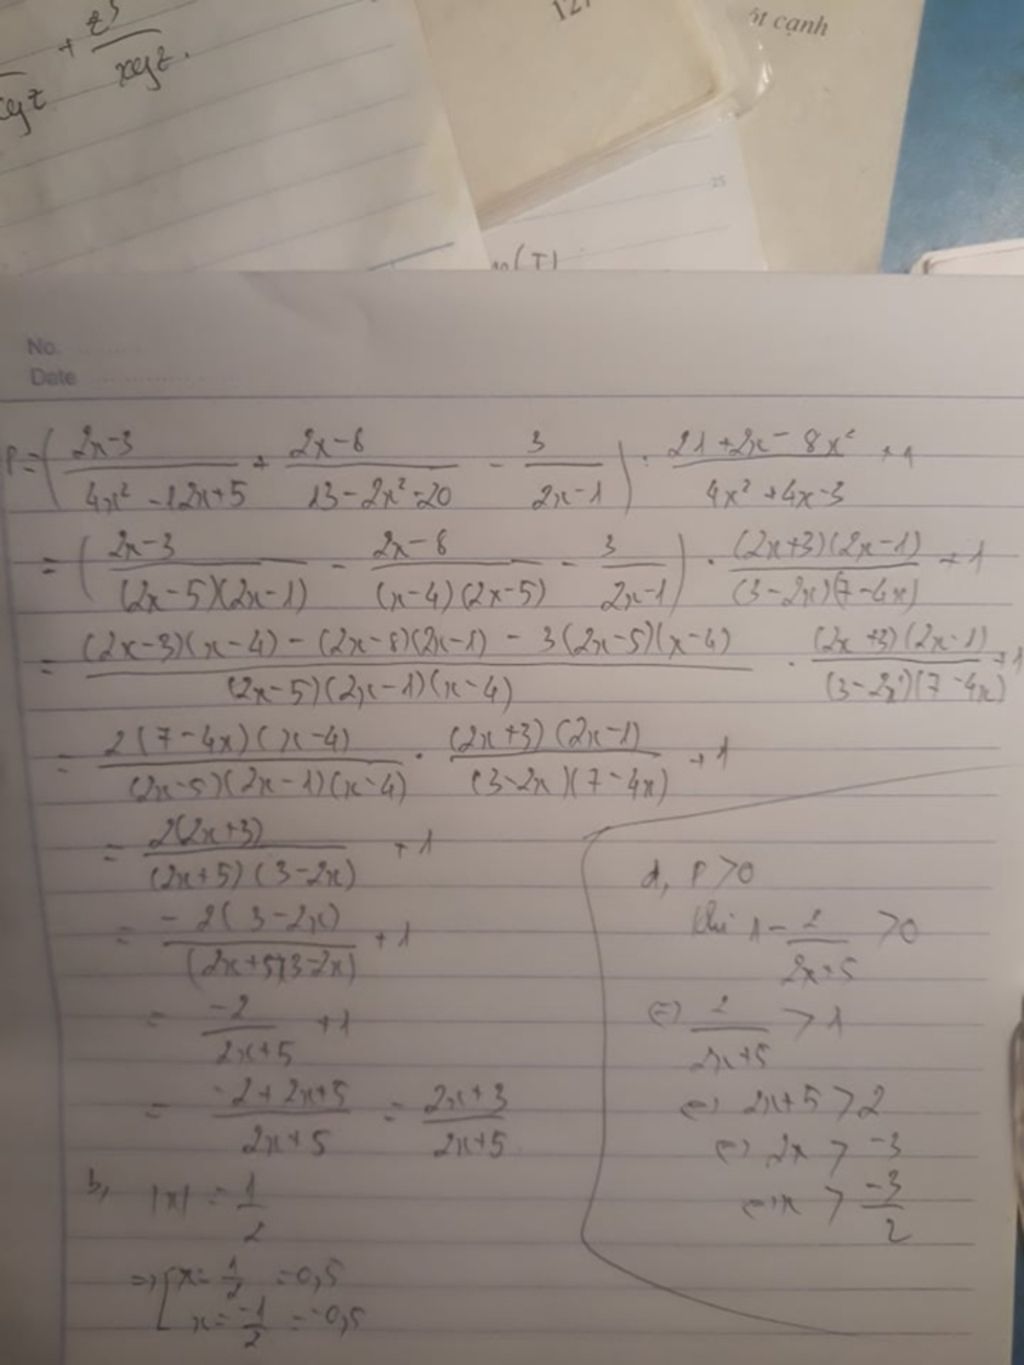 + z³/xyz.
xyz
127
ót cạnh
25
(T)
No.
Date
P = ( (2x-3)/(4x² - 12x+5) + (2x-8)/(13-2x²-20) - 3/(2x-1) ) : (21+2x-8x²)/(4x²+4x-3) + 1
= ( (2x-3)/((2x-5)(2x-1)) - (2x-8)/((x-4)(2x-5)) - 3/(2x-1) ) . ((2x+3)(2x-1))/((3-2x)(7-4x)) + 1
= ((2x-3)(x-4) - (2x-8)(2x-1) - 3(2x-5)(x-4))/((2x-5)(2x-1)(x-4)) . ((2x+3)(2x-1))/((3-2x)(7-4x)) + 1
= (2(7-4x)(x-4))/((2x-5)(2x-1)(x-4)) . ((2x+3)(2x-1))/((3-2x)(7-4x)) + 1
= (2(2x+3))/((2x+5)(3-2x)) + 1
= (-2(3-2x))/((2x+5)(3-2x)) + 1
= (-2)/(2x+5) + 1
= (-2+2x+5)/(2x+5) = (2x+3)/(2x+5)
b, |x| = 1/2
=> [ x = 1/2 = 0,5
x = -1/2 = -0,5
d, P > 0
khi 1 - 2/(2x+5) > 0
(=) 2/(2x+5) > 1
(=) 2x+5 > 2
(=) 2x > -3
(=) x > -3/2